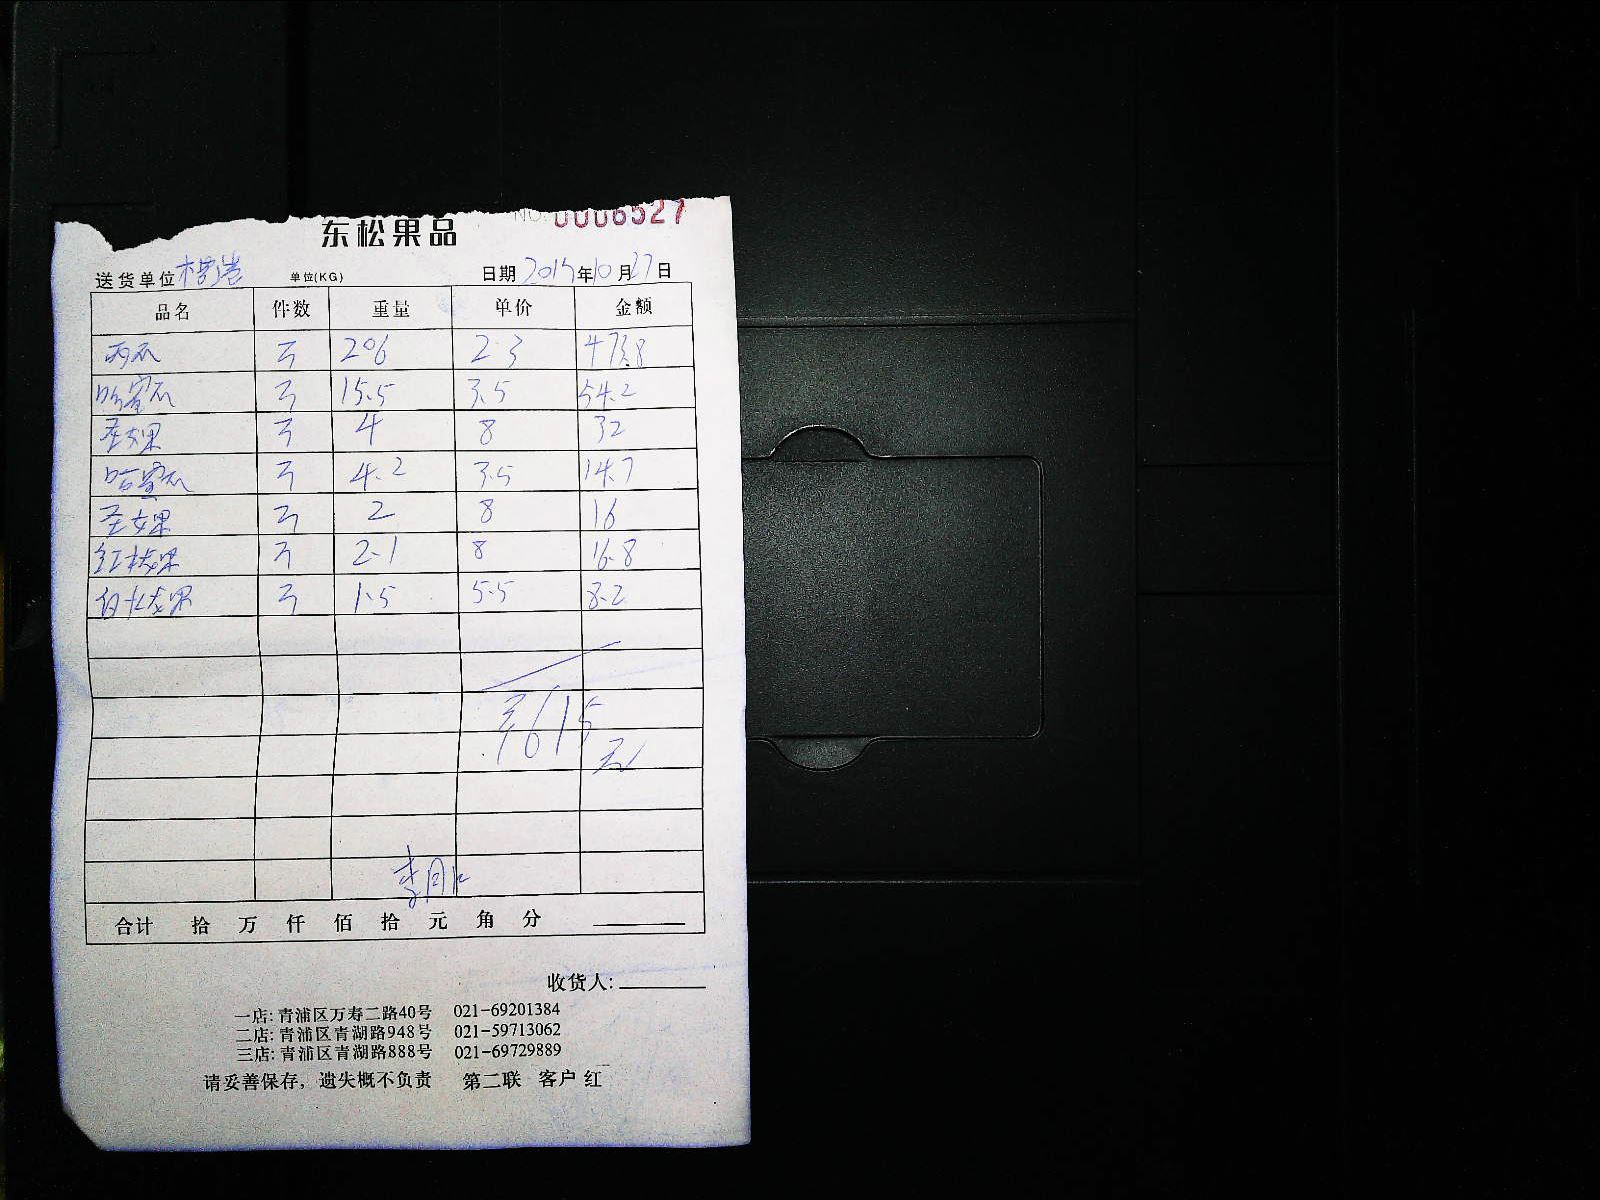 NO: 0006527
东松果品
送货单位 单位(KG) 日期 2017年10月27日
品名 件数 重量 单价 金额
西瓜 206 2.3 473.8
哈蜜瓜 15.5 3.5 54.2
圣女果 4 8 32
哈蜜瓜 4.2 3.5 14.7
圣女果 2 8 16
红龙果 2.1 8 16.8
白火龙果 1.5 5.5 8.2
¥615
元
李
合计 拾 万 仟 佰 拾 元 角 分
收货人:
一店: 青浦区万寿二路40号 021-69201384
二店: 青浦区青湖路948号 021-59713062
三店: 青浦区青湖路888号 021-69729889
请妥善保存，遗失概不负责 第二联 客户 红